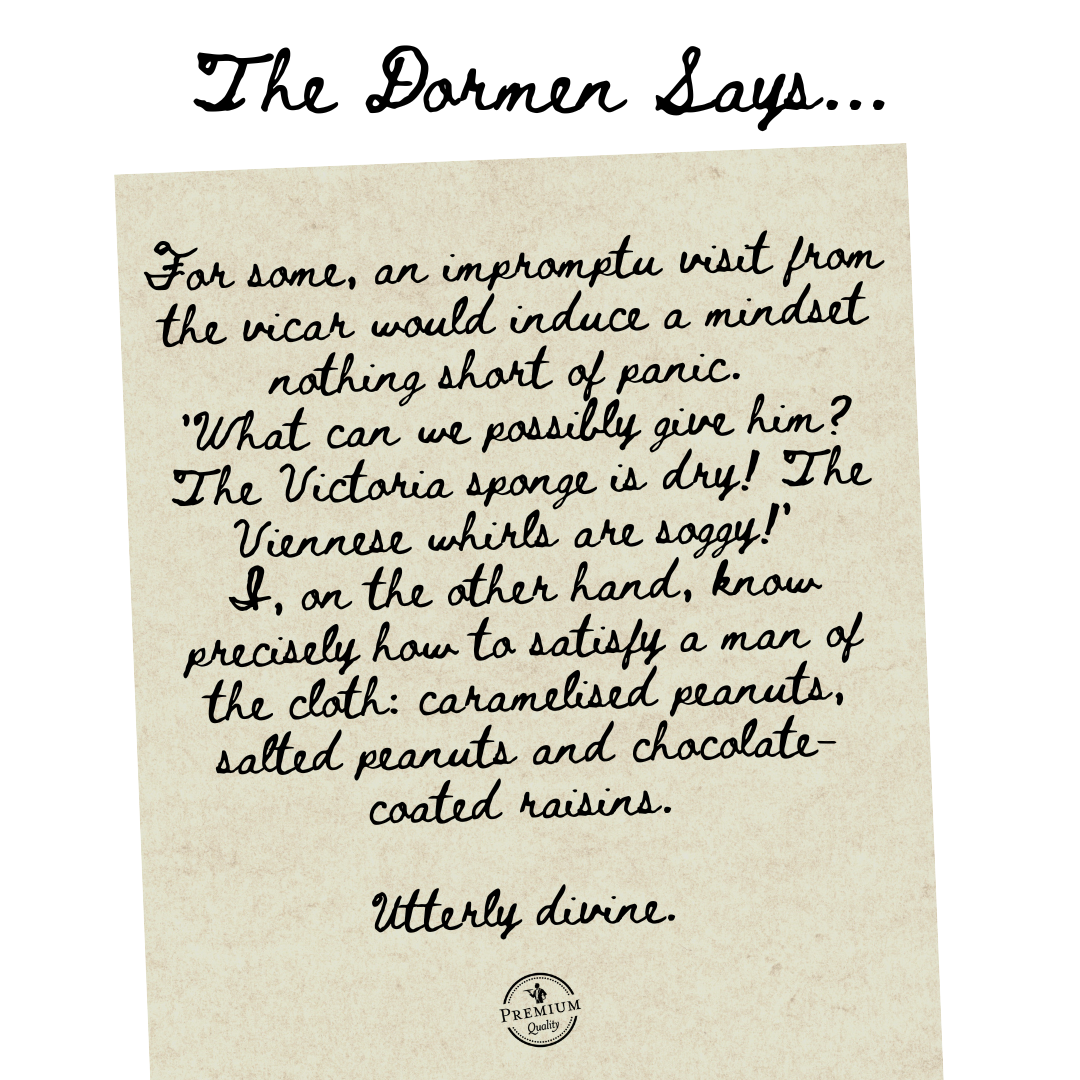 The Dormen Says...
For some, an impromptu visit from
the vicar would induce a mindset
nothing short of panic.
'What can we possibly give him?
The Victoria sponge is dry! The
Viennese whirls are soggy!'
I, on the other hand, know
precisely how to satisfy a man of
the cloth: caramelised peanuts,
salted peanuts and chocolate-
coated raisins.
Utterly divine.
PREMIUM
Quality